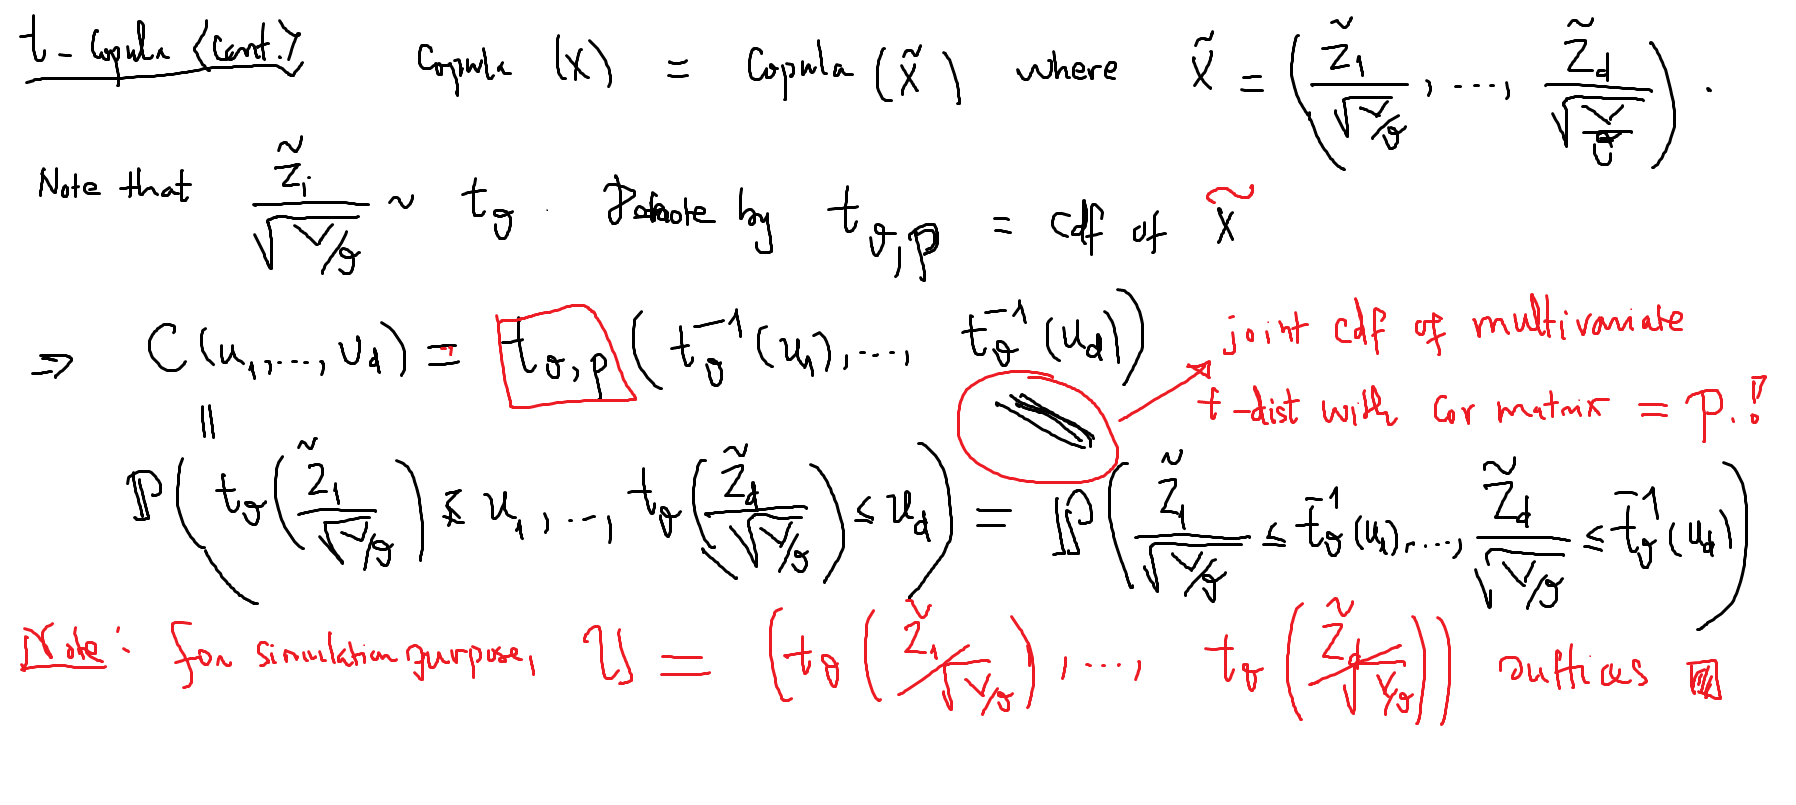 t-Copula (Cont.) Copula (X) = Copula (X̃) where X̃ = (Z̃₁/√(V/ϑ), ..., Z̃_d/√(V/ϑ)).
Note that Z̃ᵢ/√(V/ϑ) ~ t_ϑ. Denote by t_ϑ,P = cdf of X̃
⇒ C(u₁,...,u_d) = t_ϑ,P (t_ϑ⁻¹(u₁),..., t_ϑ⁻¹(u_d))
joint cdf of multivariate
t-dist with cor matrix = P.!
||
ℙ(t_ϑ(Z̃₁/√(V/ϑ)) ≤ u₁, ..., t_ϑ(Z̃_d/√(V/ϑ)) ≤ u_d) = ℙ(Z̃₁/√(V/ϑ) ≤ t_ϑ⁻¹(u₁), ..., Z̃_d/√(V/ϑ) ≤ t_ϑ⁻¹(u_d))
Note: for simulation purpose, U = (t_ϑ(Z̃₁/√(V/ϑ)), ..., t_ϑ(Z̃_d/√(V/ϑ))) suffices